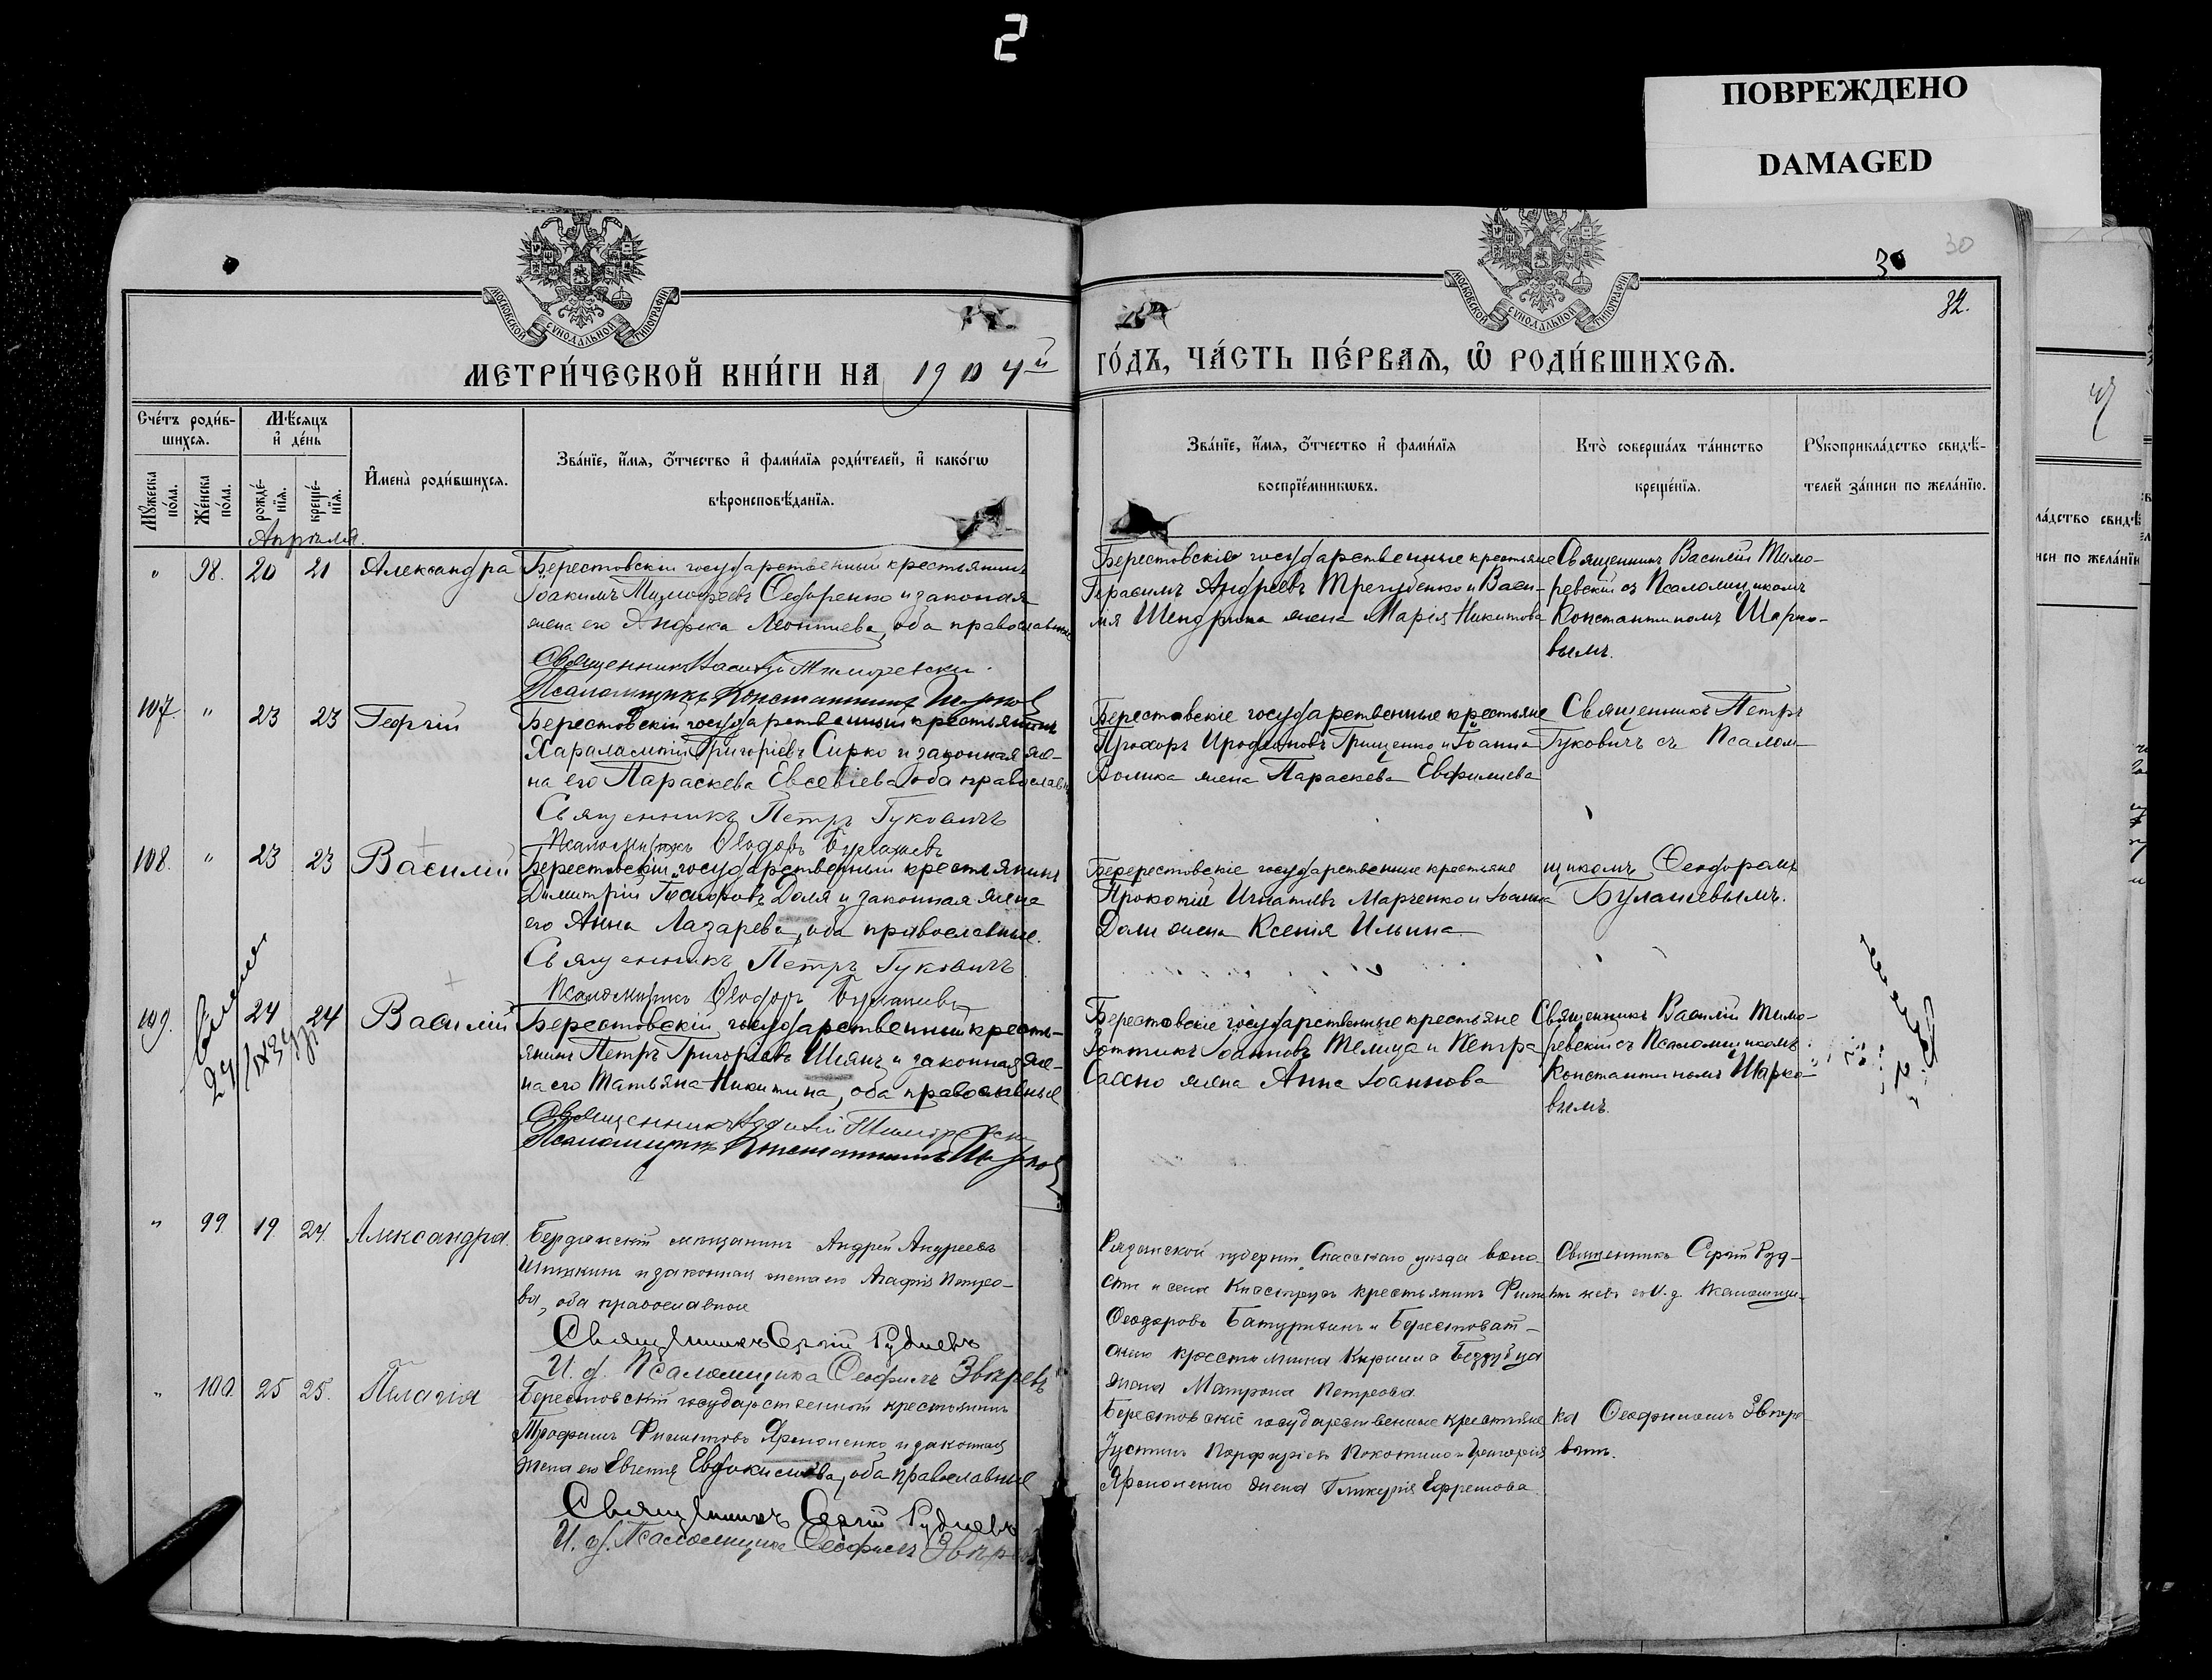 2
ПОВРЕЖДЕНО
DAMAGED
30
30
32.
МОСКОВСКОЙ СѴНОДАЛЬНОЙ ТИПОГРАФІИ
МОСКОВСКОЙ СѴНОДАЛЬНОЙ ТИПОГРАФІИ
МЕТРИ́ЧЕСКОЙ КНИ́ГИ НА 1904й
ГО́ДЪ, ЧА́СТЬ ПЕ́РВАЯ, Ѡ РОДИ́ВШИХСЯ.
Сче́тъ роди́в-
шихся.
Мꙋ́жеска по́ла.
Же́нска по́ла.
Мѣ́сяцъ
и де́нь
рожде́-
нїя.
креще́-
нїя.
Имена̀ роди́вшихся.
Зва́нїе, и́мя, о́тчество и фами́лїя роди́телей, и како́гѡ
вѣроисповѣ́данїя.
Зва́нїе, и́мя, о́тчество и фами́лїя
воспрїе́мникѡвъ.
Кто̀ соверша́лъ та́инство
креще́нїя.
Рꙋкоприкла́дство свидѣ́-
телей за́писи по жела́нїю.
Апрѣля.
" 98. 20 21 Александра
Берестовскій государственный крестьянинъ
Іоакимъ Тимофеевъ Федоренко и законная
жена его Анфиса Леонтиева, оба православные
Священникъ Василій Тиморевскій
Псаломщикъ Константинъ Шарков
Берестовскіе государственные крестьяне
Герасимъ Андреевъ Трегубенко и Васи-
лія Шендрика жена Марія Никитова
Священникъ Василій Тимо-
ревскій съ Псаломщикомъ
Константиномъ Шарко-
вымъ.
107. " 23 23 Георгій
Берестовскій государственный крестьянинъ
Харалампій Григоріевъ Сирко и законная же-
на его Параскева Евсевіева оба православн
Священникъ Петръ Гуковичъ
Псаломщикъ Ѳеодоръ Булашевъ
Берестовскіе государственные крестьяне
Прохоръ Иродіоновъ Грищенко и Іоанна
Волика жена Параскева Евфимиева
Священникъ Петръ
Гуковичъ съ Псалом-
108. " 23 23 Василій
Берестовскій государственный крестьянинъ
Димитрій Доля и законная жена
его Анна Лазарева, оба православные.
Священникъ Петръ Гуковичъ
Псаломщикъ Ѳеодоръ Булашевъ
Беререстовскіе государственные крестьяне
Прокопій Игнатіевъ Марченко и Іоанна
Доли жена Ксенія Ильина
щикомъ Ѳеодоромъ
Булашевымъ.
109. 24 24 Василій
Берестовскій государственный кресть-
янинъ Петръ Григоріевъ Шіянъ и законная же-
на его Татьяна Никитина, оба православные
Священникъ Василій Тиморевскій
Псаломщикъ Константинъ Шарков
Берестовскіе государственные крестьяне
Зоттикъ Іоанновъ Телица и Петра
Сахно жена Анна Іоаннова
Священникъ Василій Тимо-
ревскій съ Псаломщикомъ
Константиномъ Шарко-
вымъ.
" 99 19 24. Александра.
Бердянскій мѣщанинъ Андрей Андреевъ
и законная жена его Агафія Петро-
ва, оба православные
Священникъ Сергій Рудневъ
И. д. Псаломщика Ѳеофилъ Звѣревъ
Рязанской губерніи Спасскаго уезда воло-
сти и села крестьянинъ
Ѳеодоровъ Батуринъ и Берестоват-
скаго крестьянина Кирилла
жена Матрона Петрова
Священникъ Сергій Руд-
невъ съ И. д. Псаломщи-
" 100 25 25. Пелагія
Берестовскій государственной крестьянинъ
Трофимъ Филипповъ Ярмоленко и законная
жена его Евгенія Евдокимова, оба православные
Священникъ Сергій Рудневъ
И. д. Псаломщика Ѳеофилъ Звѣрев
Берестовскіе государственные крестьяне
Іустинъ Порфиріевъ и Григорія
Ярмоленко жена Гликерія Ефремова.
ка Ѳеофиломъ Звѣре-
вымъ.